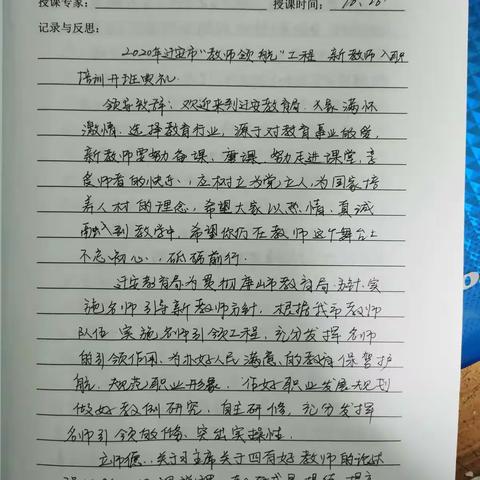 授课专家: 授课时间: 10.26.
记录与反思:
2020年迁安市“教师领航”工程 新教师入职
培训开班典礼.
领导致辞: 欢迎来到迁安教育局. 大家满怀
激情. 选择教育行业, 源于对教育事业的爱,
新教师要努备课、磨课、努走进课堂, 享
受师者的快乐、, 应树立为党立人, 为国家培
养人材的理念, 希望大家以热情、真诚
融入到教学中, 希望你们在教师这个舞台上
不忘初心、, 砥砺前行.
迁安教育局为贯彻唐山市教育局. 方针. 实
施名师引导新教师方针, 根据我市教师
队伍 实施名师引领工程, 充分发挥名师
的引领作用. 为办好人民满意的教育保驾护
航. 规范职业形象. 作好职业发展规划
做好教例研究. 自主研修. 充分发挥
名师引领的作. 突出实操性.
立师德. 关于习主席关于四有好教师的论述